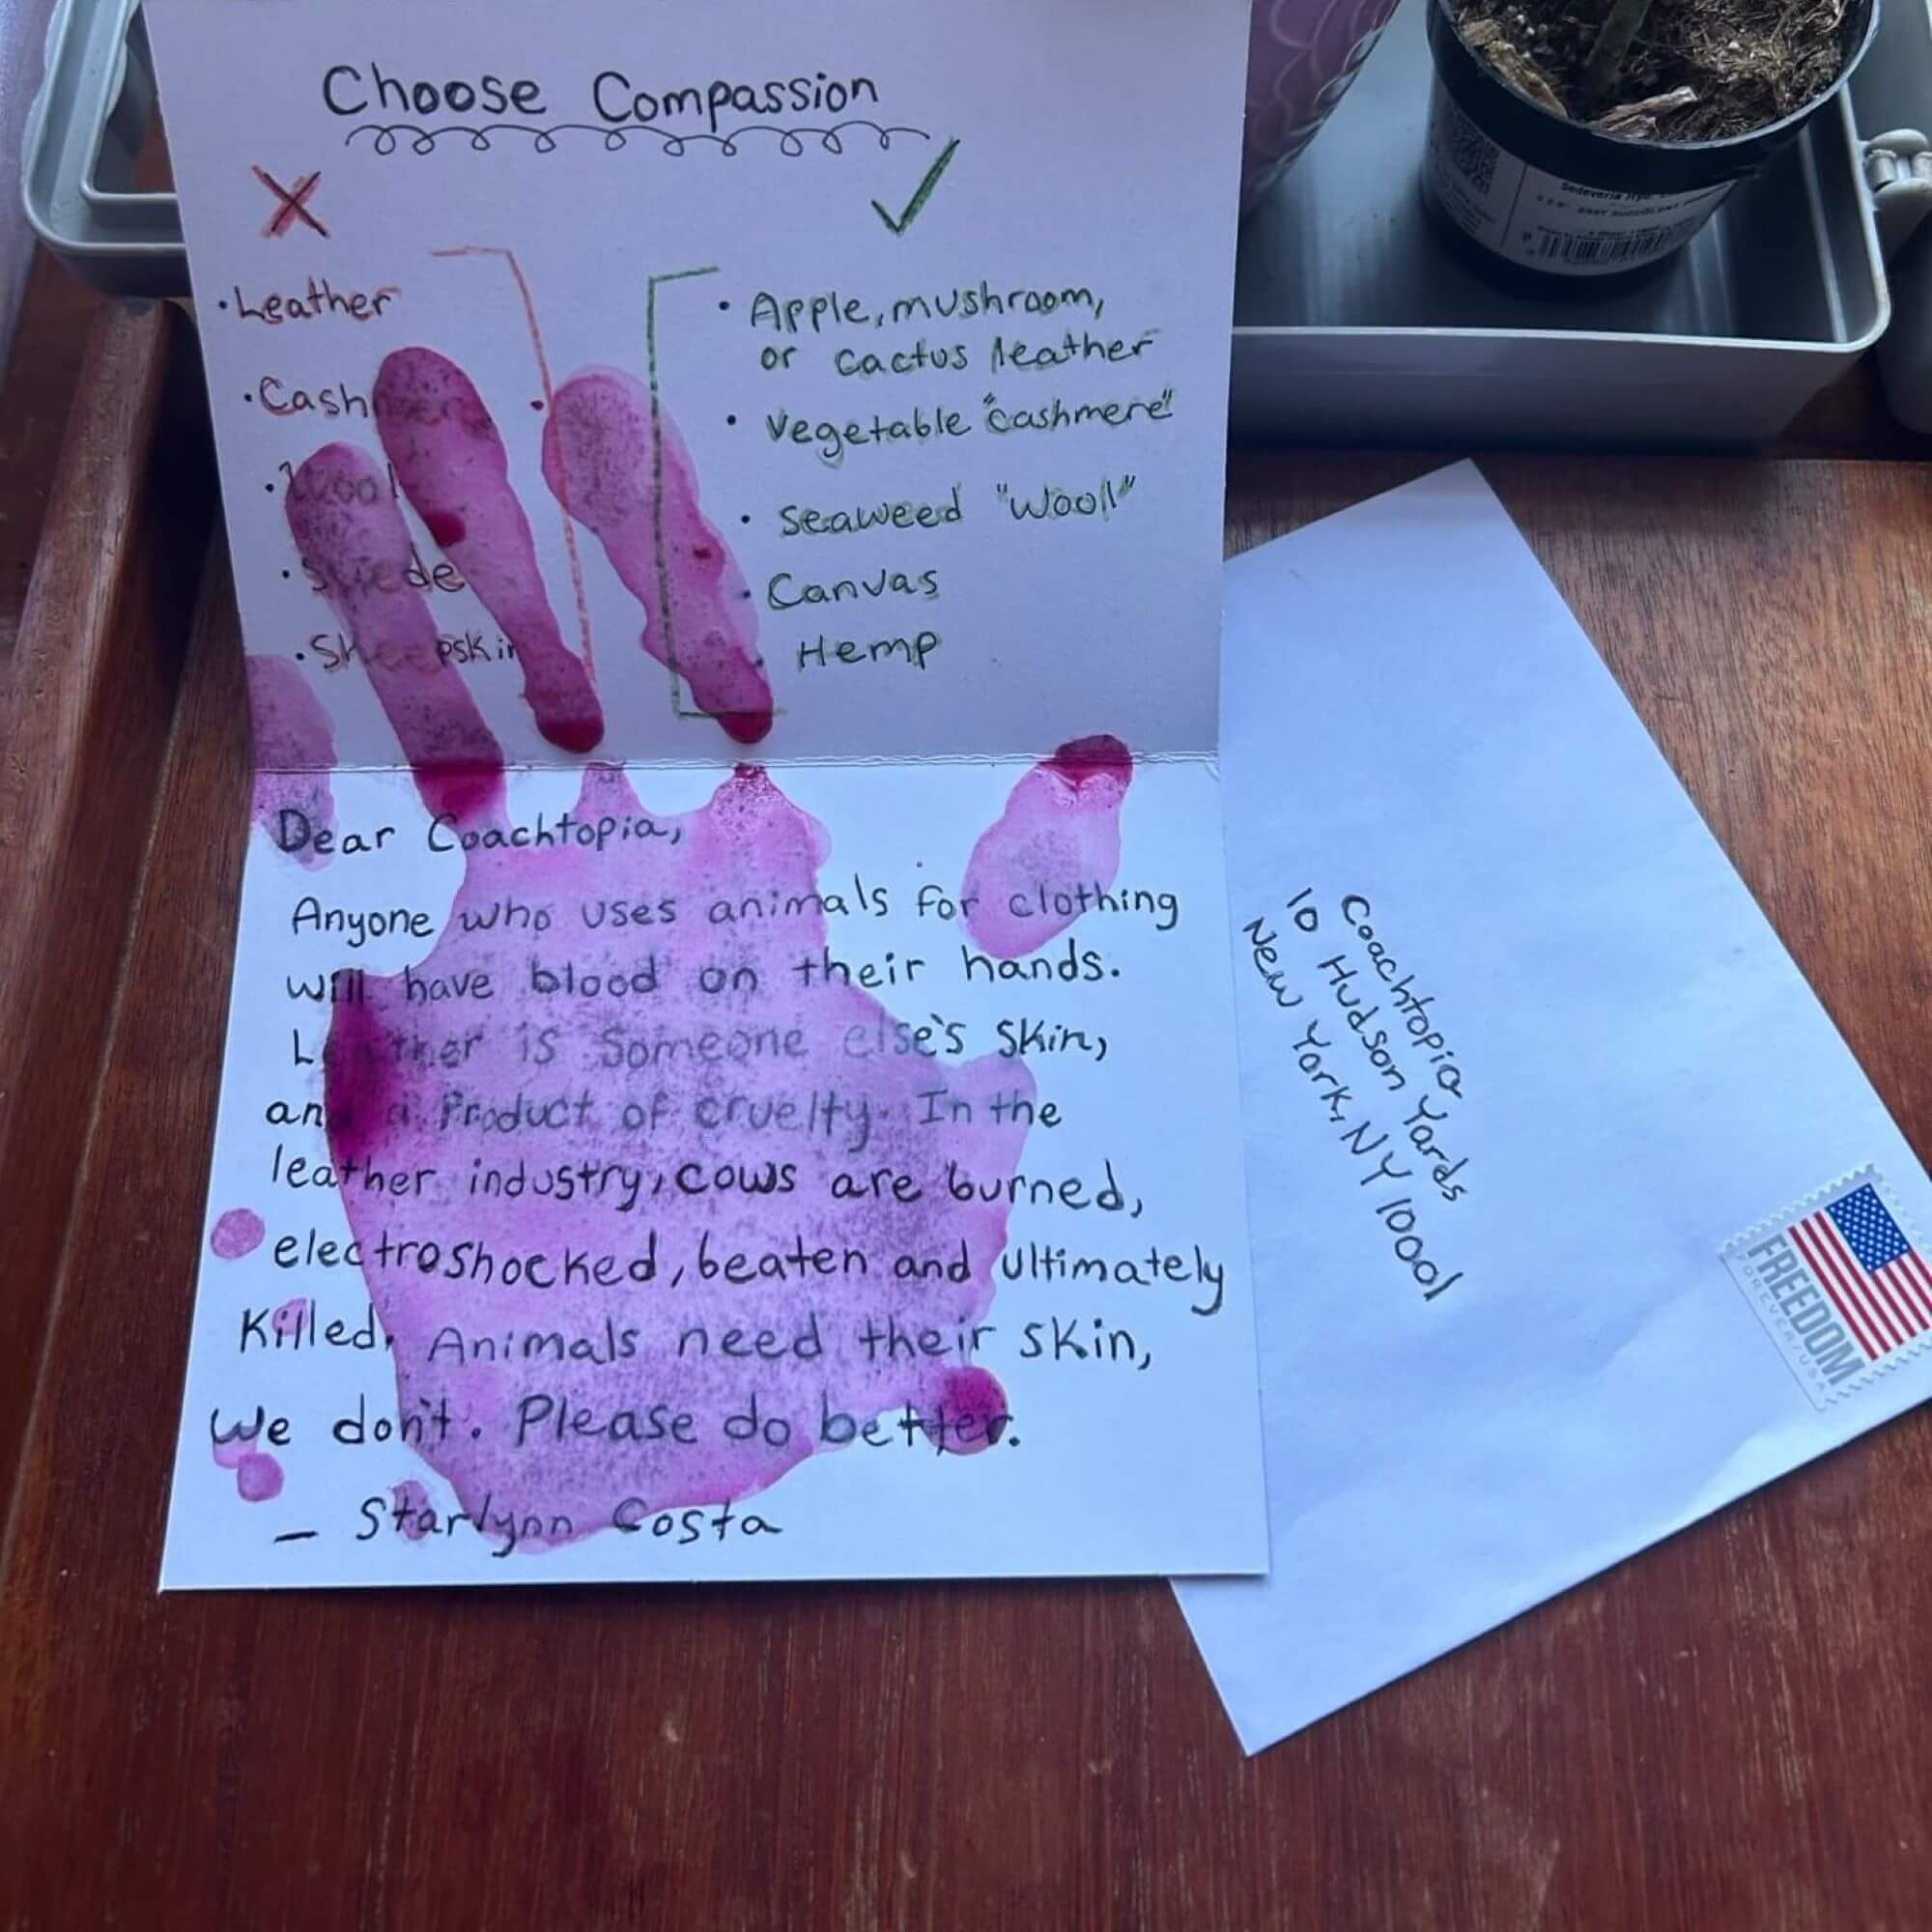 Choose Compassion
• Leather
• Cashmere
• Wool
• Suede
• Sheepskin
• Apple, mushroom,
or cactus leather
• Vegetable "cashmere"
• Seaweed "Wool"
• Canvas
• Hemp
Dear Coachtopia,
Anyone who uses animals for clothing
will have blood on their hands.
Leather is someone else's skin,
and a product of cruelty. In the
leather industry, cows are burned,
electroshocked, beaten and ultimately
Killed. Animals need their skin,
we don't. Please do better.
– Starlynn Costa
Coachtopia
10 Hudson Yards
New York, NY 10001
FREEDOM
FOREVER/USA
Sedeveria